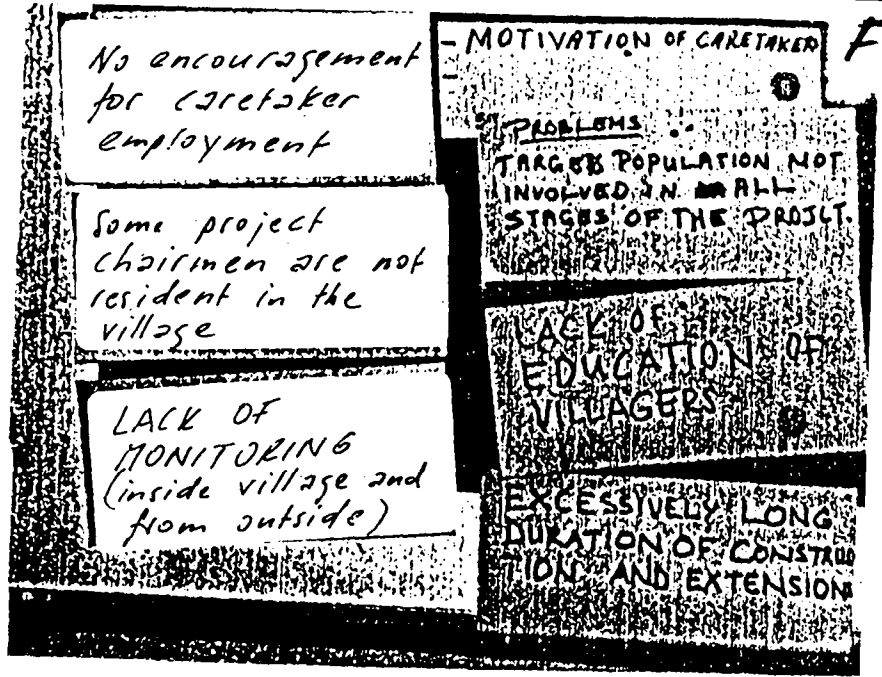 No encouragement
for caretaker
employment
Some project
chairmen are not
resident in the
village
LACK OF
MONITORING
(inside village and
from outside)
- MOTIVATION OF CARETAKER
-
PROBLEMS
TARGET POPULATION NOT
INVOLVED IN ALL
STAGES OF THE PROJCT.
LACK OF
EDUCATION OF
VILLAGERS
EXCESSIVELY LONG
DURATION OF CONSTRUC
TION AND EXTENSION
F